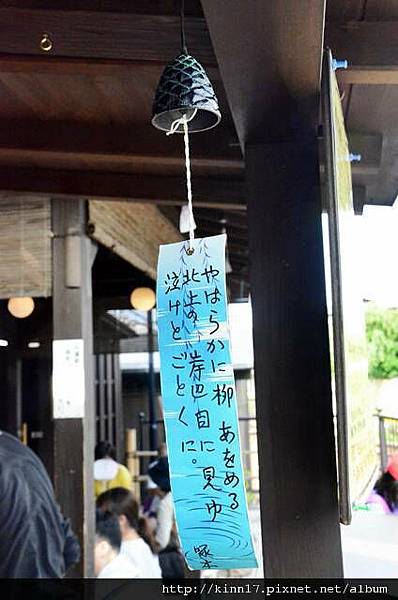 やはらかに柳あをめる
北上の岸辺目に見ゆ
泣けとごとくに。
http://kinn17.pixnet.net/album